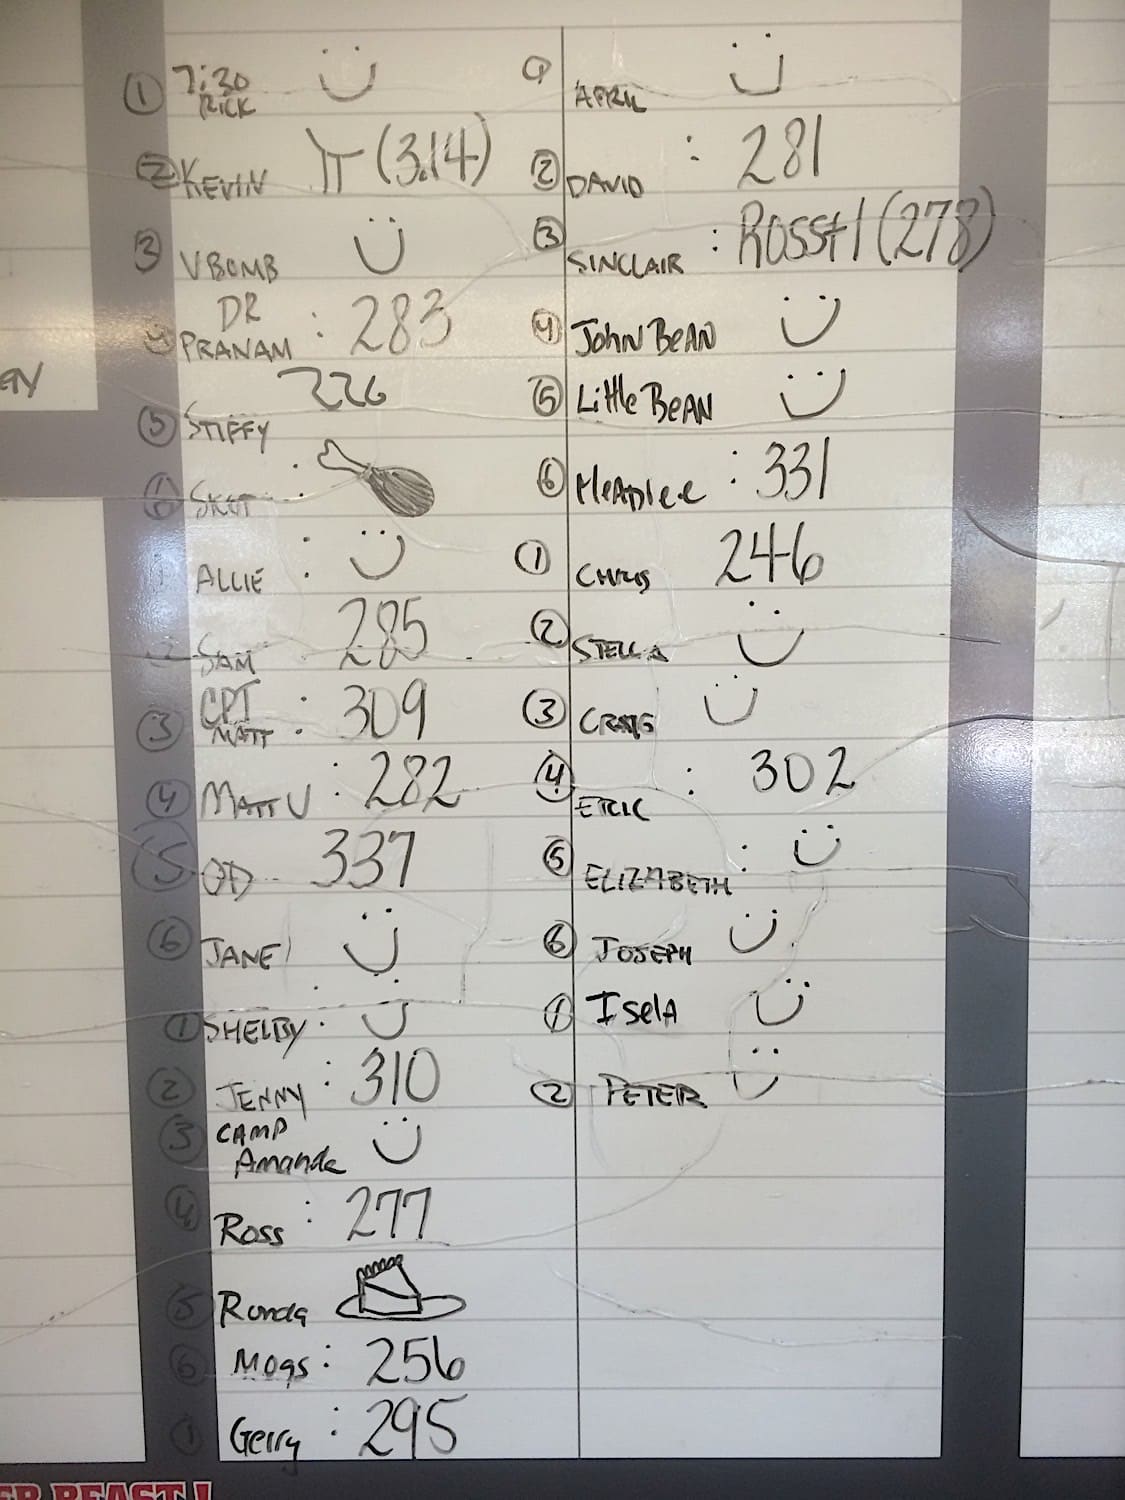 ① 7:30
RICK
② KEVIN π (3.14)
③ VBOMB
DR
④ PRANAM : 283
226
⑤ STIFFY
⑥ SKOT :
ALLIE :
② SAM 285
③ CPT
MATT : 309
④ MATT V : 282
⑤ OD 337
⑥ JANE
① SHELBY :
② JENNY : 310
③ CAMP
Amanda
④ ROSS : 277
⑤ Ronda
⑥ MOGS : 256
① Gerry : 295
① APRIL
② DAVID : 281
③ SINCLAIR : ROSS+1 (278)
④ John BeAN
⑤ Little BeAN
⑥ : 331
① CHRIS 246
② STELLA
③ CRAIG
④ ERIC : 302
⑤ ELIZABETH :
⑥ JOSEPH
① IselA
② PETER
ER BEAST!